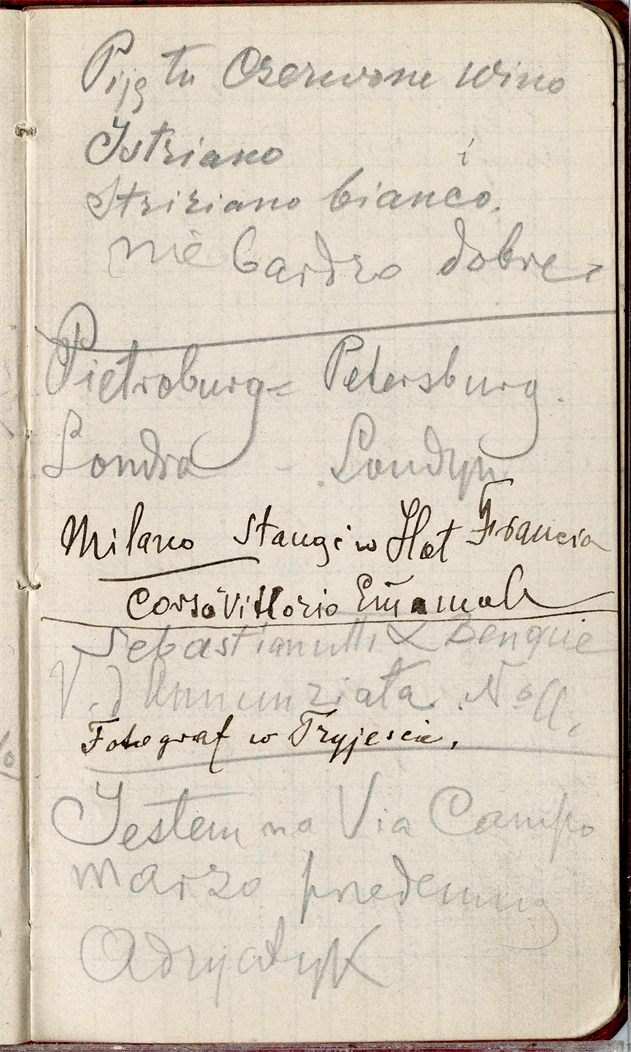 Piją tu Czerwone wino
Istriano i
Striziano bianco.
nie bardzo dobre
Pietroburg = Petersburg.
Londra - Londyn
Milano Stanąć w Hot Francia
Corso Vittorio Emanuele
Sebastianutti & Benque
V. d Annunziata. No 11.
Fotograf w Tryjeście.
Jestem na Via Campo
marzo predemną
Adryatyk